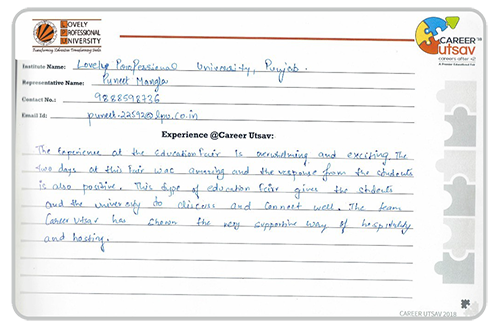 LOVELY
PROFESSIONAL
UNIVERSITY
Transforming Education Transforming India
CAREER
utsav
careers after +2
A Premier Educational Fair
Institute Name: Lovely Professional University, Punjab.
Representative Name: Puneet Mangla
Contact No.: 9888598736
Email Id: puneet.22592@lpu.co.in
Experience @Career Utsav:
The Experience at the Education Fair is overwhelming and exciting. The
two days at this Fair was amazing and the response from the students
is also positive. This type of education Fair gives the students
and the university to discuss and connect well. The team
Career Utsav has shown the very supportive way of hospitality
and hosting.
CAREER UTSAV 2018